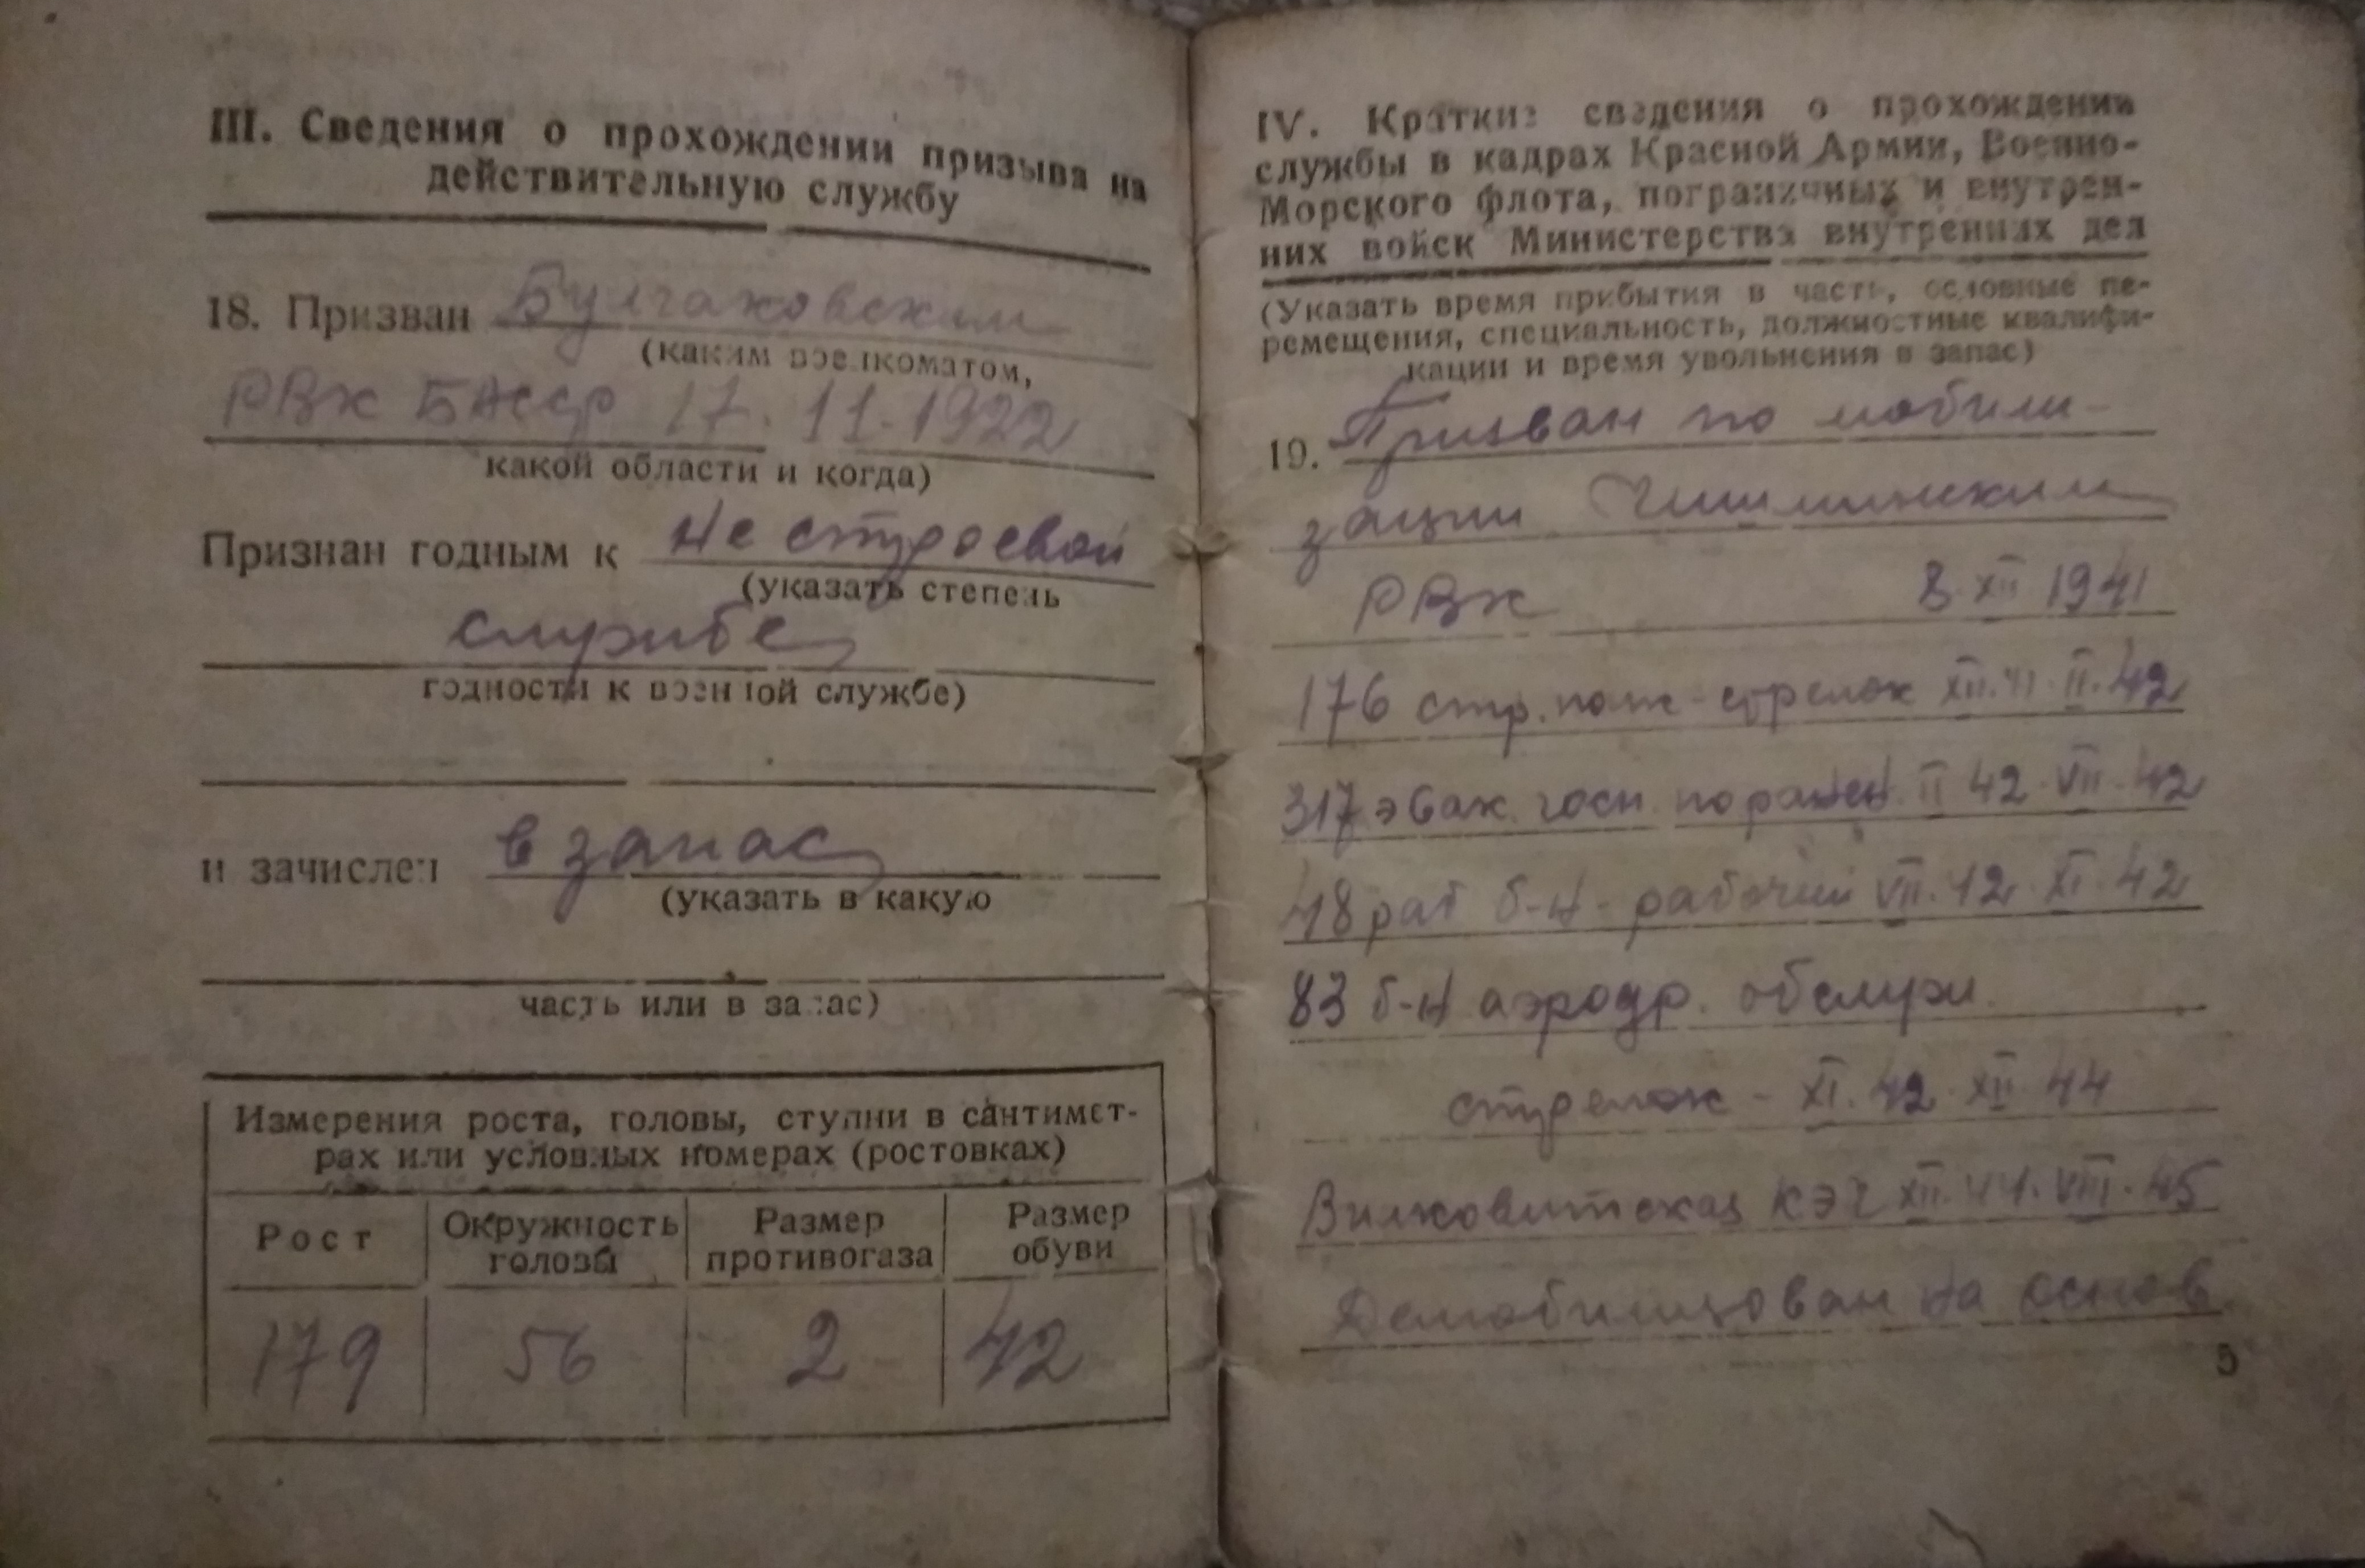 III. Сведения о прохождении призыва на
действительную службу
18. Призван Булгаковским
(каким военкоматом,
РВК БАССР 17.11.1922
какой области и когда)
Признан годным к не строевой
(указать степень
службе
годности к военной службе)
и зачислен в запас
(указать в какую
часть или в запас)
Измерения роста, головы, ступни в сантимет-
рах или условных номерах (ростовках)
Рост
Окружность
головы
Размер
противогаза
Размер
обуви
179 56 2 42
IV. Краткие сведения о прохождении
службы в кадрах Красной Армии, Военно-
Морского флота, пограничных и внутрен-
них войск Министерства внутренних дел
(Указать время прибытия в часть, основные пе-
ремещения, специальность, должностные квалифи-
кации и время увольнения в запас)
19. Призван по мобили-
зации Чишминским
РВК 8 XII 1941
176 стр. полк - стрелок XII.41 II.42
317 эвак. госп. по ранен. II 42 VII.42
48 раб б-н - рабочий VII.42 XI.42
83 б-н аэродр. обслуж.
стрелок - XI.42 XII 44
КЭЧ XII.44. VIII.45
Демобилизован на основ
5